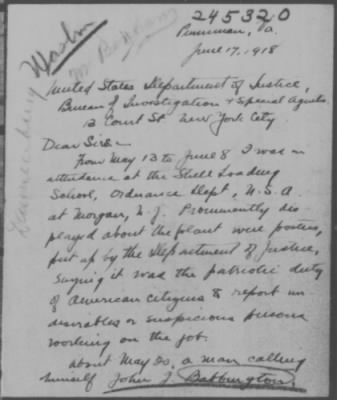 245320
Penniman, Va.
June 17, 1918
Washn
United States Department of Justice,
Bureau of Investigation & Special Agents
12 Court St. New York City
Dear Sirs-
From May 13 to June 8 I was in
attendance at the Shell Loading
School, Ordnance Dept, U.S.A.
at Morgan, N.J. Prominently dis
played about the plant were posters,
put up by the Department of Justice,
saying it was the patriotic duty
of American citizens to report un
desirables or suspicious persons
working on the job.
About May 20, a man calling
himself John J. Babbington